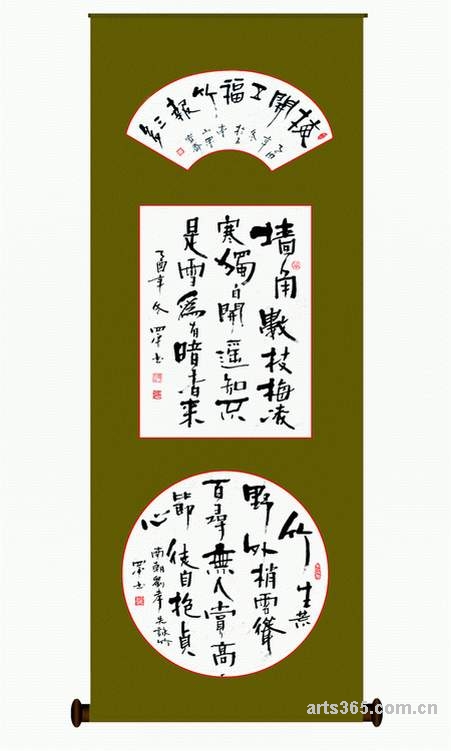 梅開五福竹報三多
墙角數枝梅凌
寒獨自開遥知不
是雪為有暗香來
乙酉年冬
竹生荒
野外梢雲聳
百尋無人賞高
節徒自抱貞
心
南朝劉孝先詠竹
arts365.com.cn